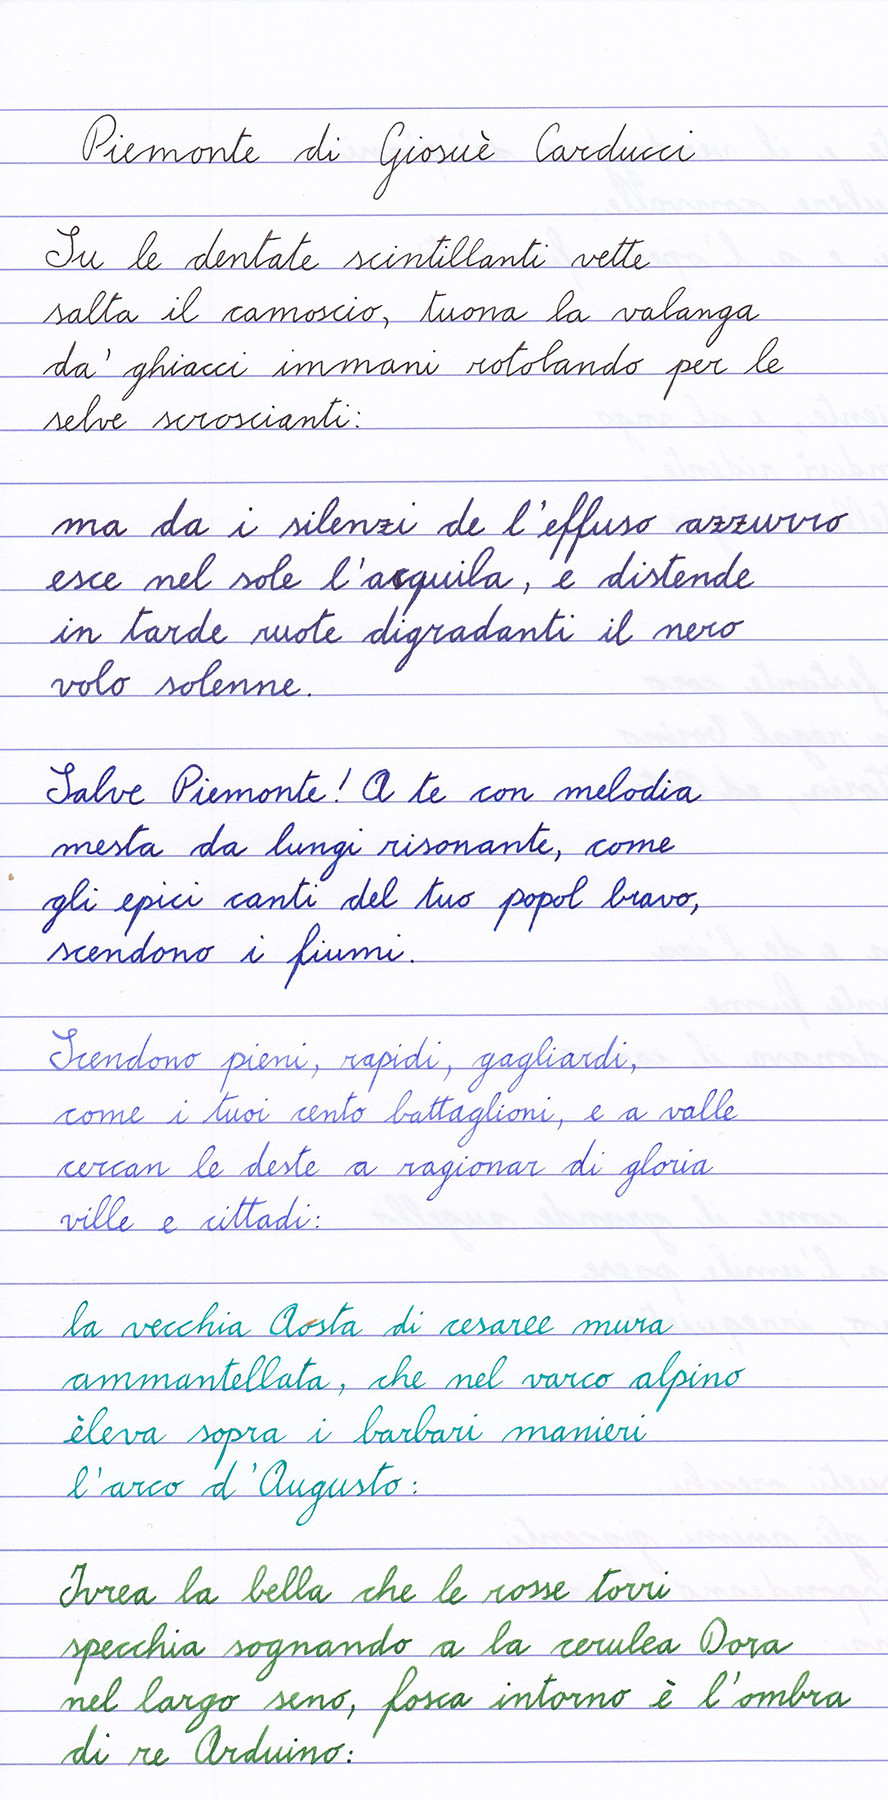 Piemonte di Giosuè Carducci
Su le dentate scintillanti vette
salta il camoscio, tuona la valanga
da' ghiacci immani rotolando per le
selve scroscianti:
ma da i silenzi de l'effuso azzurro
esce nel sole l'acquila, e distende
in tarde ruote digradanti il nero
volo solenne.
Salve Piemonte! A te con melodia
mesta da lungi risonante, come
gli epici canti del tuo popol bravo,
scendono i fiumi.
Scendono pieni, rapidi, gagliardi,
come i tuoi cento battaglioni, e a valle
cercan le deste a ragionar di gloria
ville e cittadi:
la vecchia Aosta di cesaree mura
ammantellata, che nel varco alpino
èleva sopra i barbari manieri
l'arco d'Augusto:
Ivrea la bella che le rosse torri
specchia sognando a la cerulea Dora
nel largo seno, fosca intorno è l'ombra
di re Arduino: